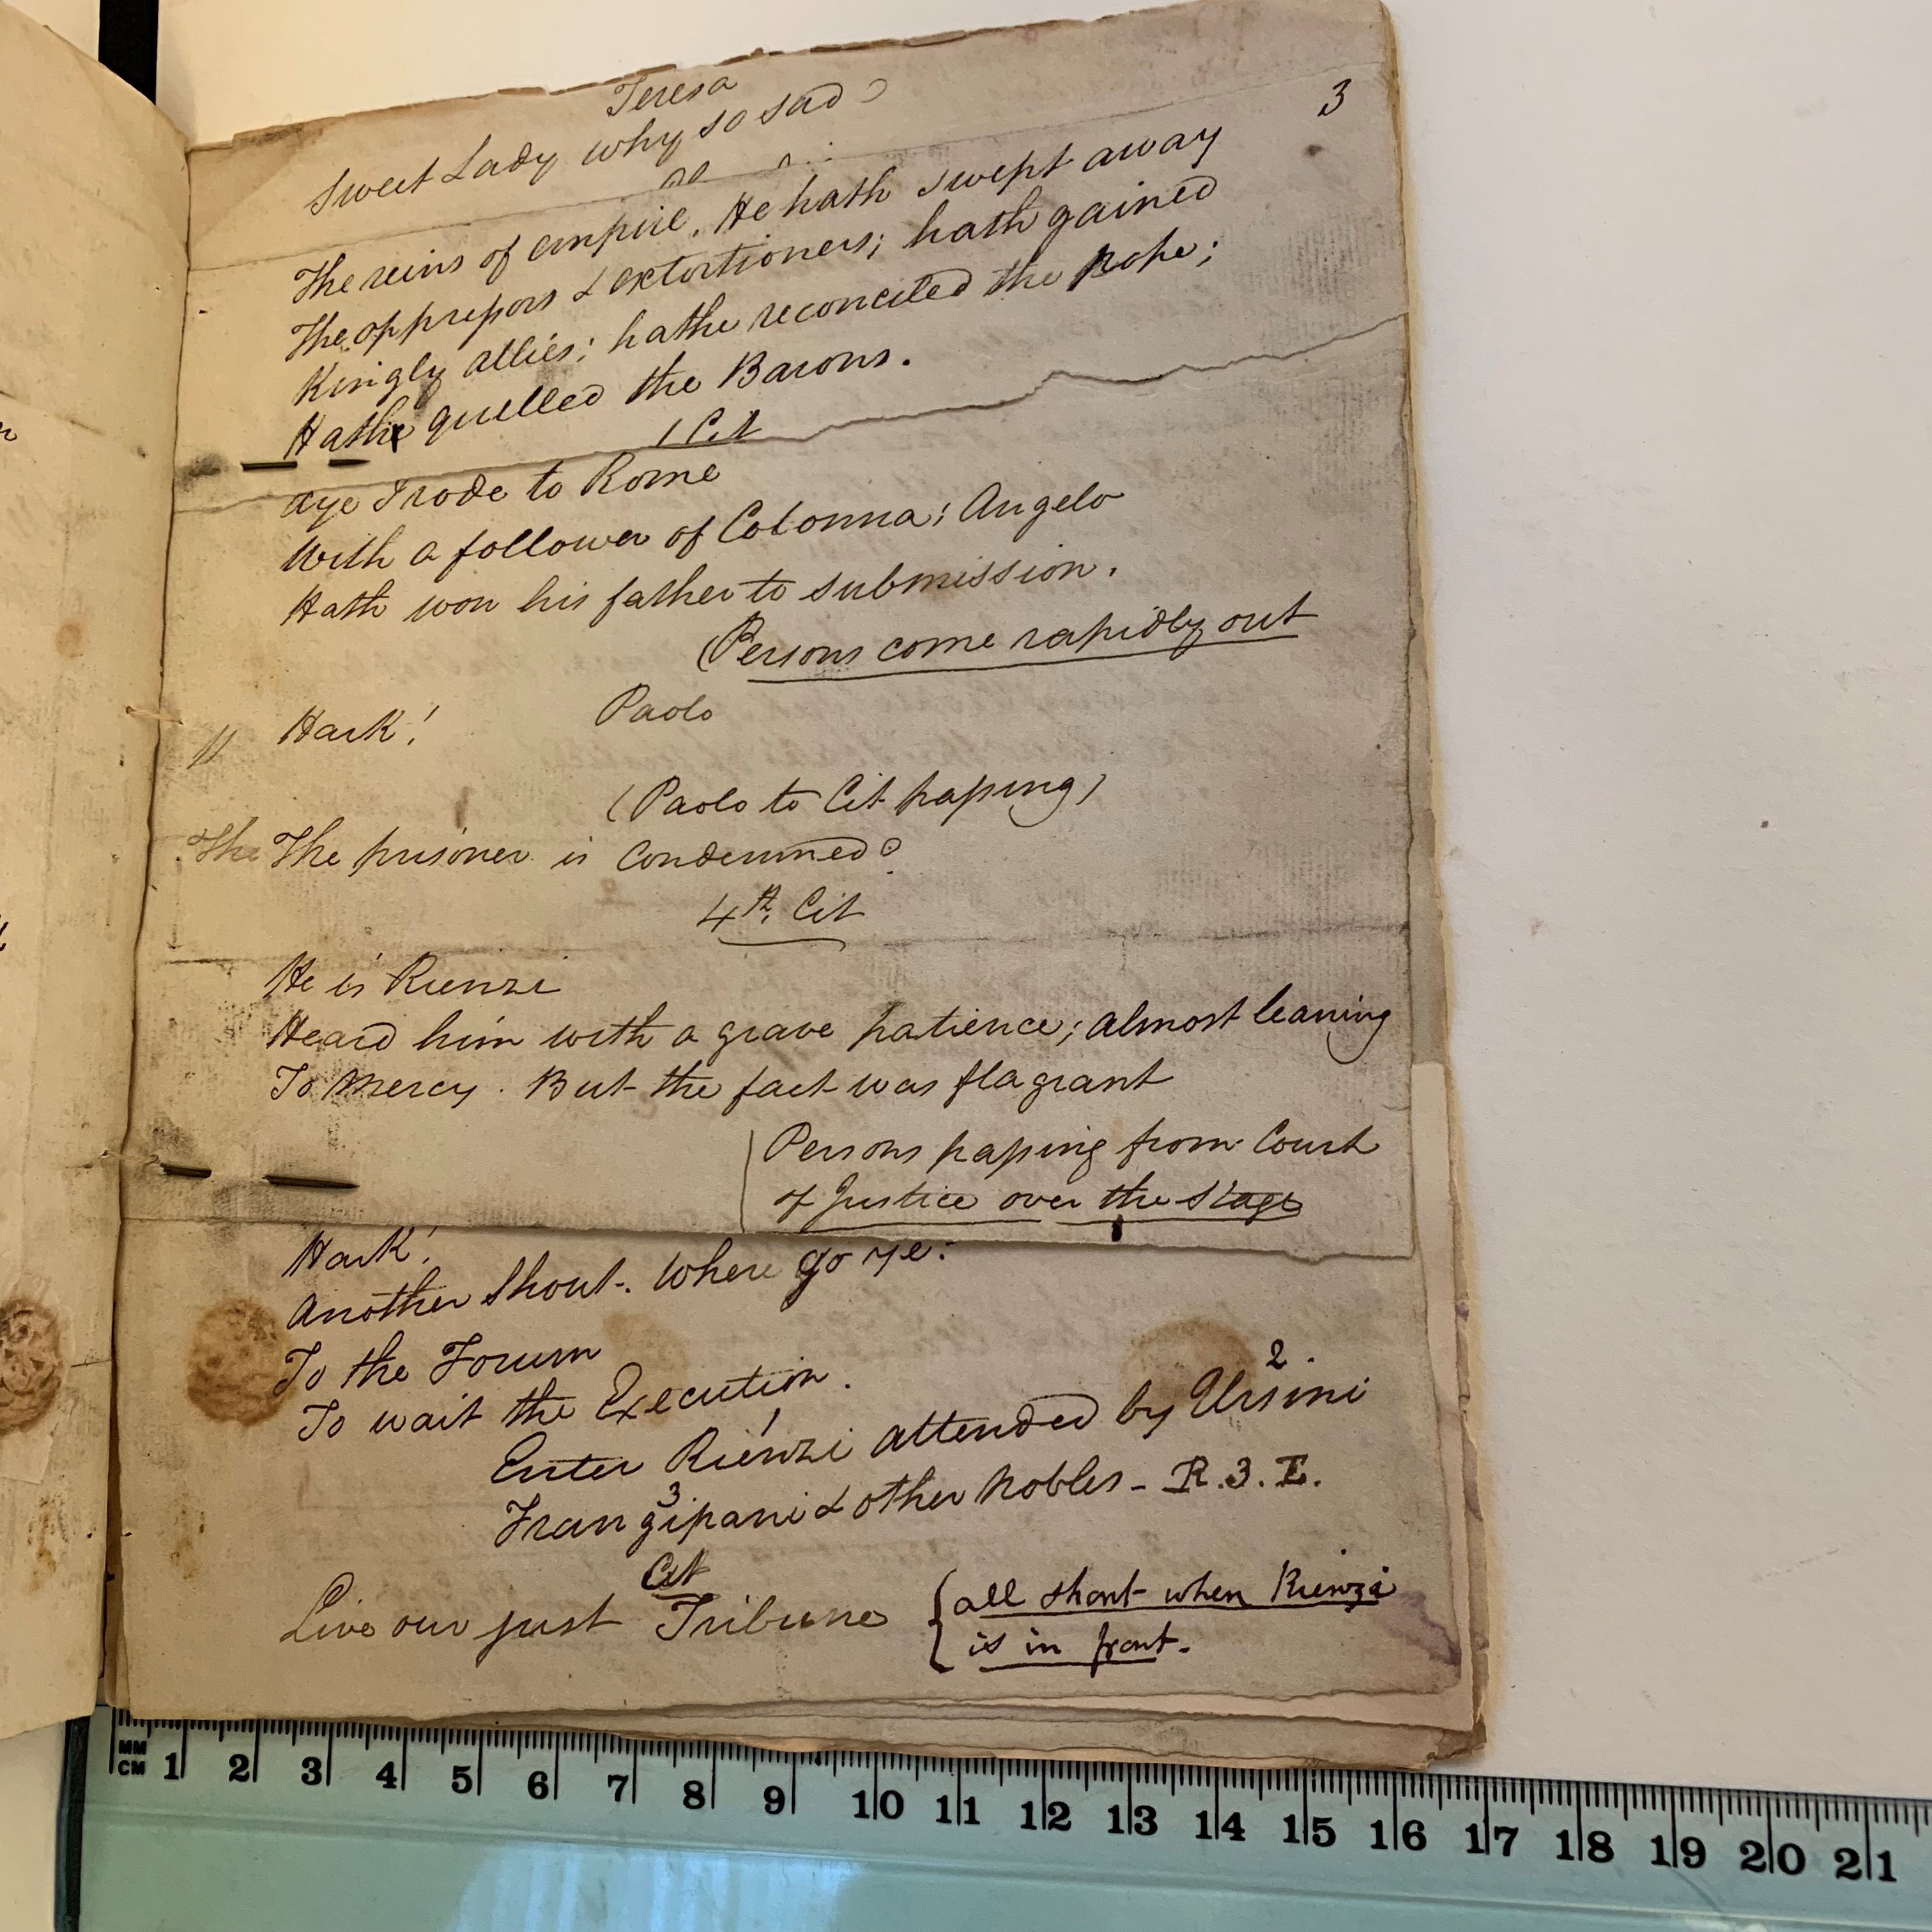 3
Teresa
Sweet Lady why so sad?
The reins of empire. He hath swept away
The oppressors & extortioners; hath gained
Kingly allies; hathe reconciled the Pope;
Hathe quelled the Barons.
1 Cit
Aye I rode to Rome
With a follower of Colonna; Angelo
Hath won his father to submission.
(Persons come rapidly out
Paolo
Hark!
(Paolo to Cit passing)
The The prisoner is Condemned?
4th. Cit
He is Rienzi
Heard him with a grave patience; almost leaning
To Mercy. But the fact was flagrant
Persons passing from Court
of Justice over the Stage
Hark!
Another Shout. Where go ye:
To the Forum
To wait the Execution.
Enter Rienzi attended by Ursini
1 2
Frangipani & other Nobles - R.3.E.
3
Cit
Live our just Tribune
{all shout when Rienzi
is in front.
MM
CM 1 2 3 4 5 6 7 8 9 10 11 12 13 14 15 16 17 18 19 20 21